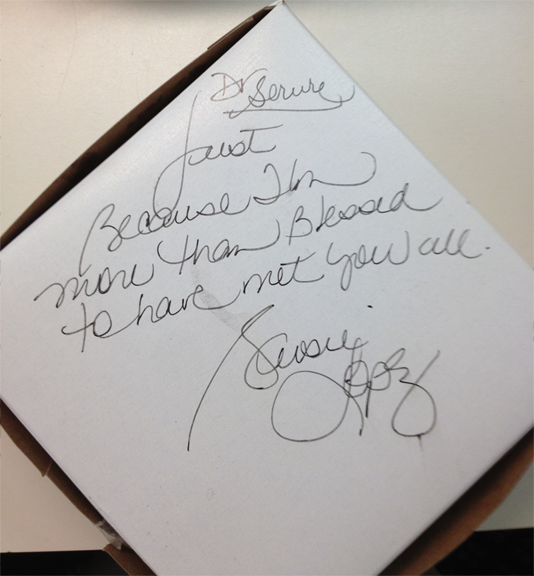 Dr Serure
Just
Because I'm
more than Blessed
to have met you all.
Susie
Lopez